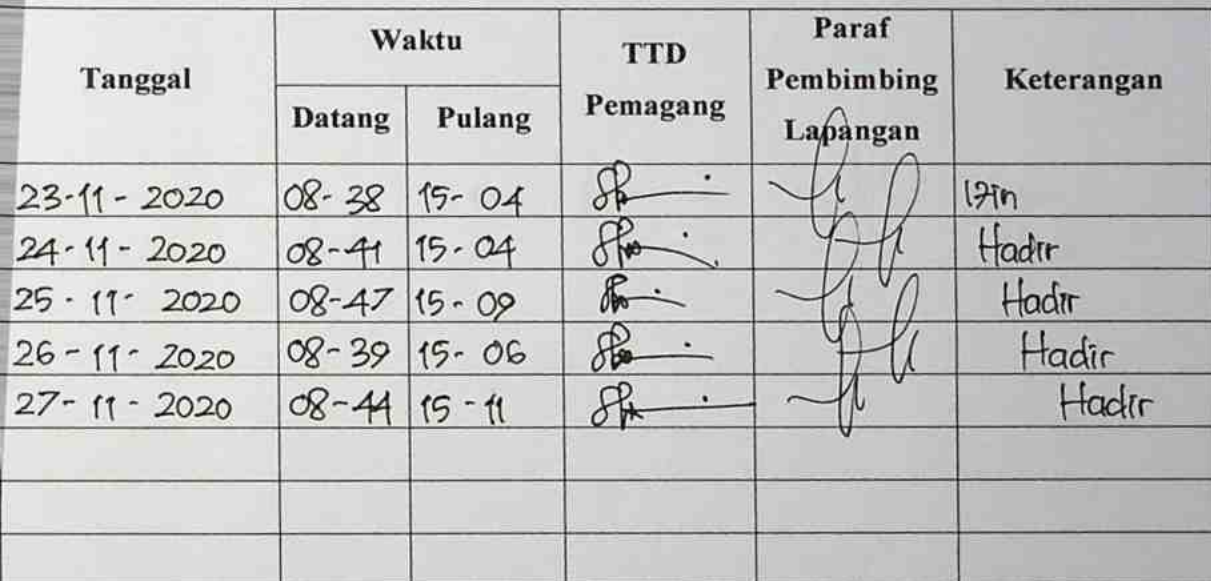 Tanggal Waktu TTD Pemagang Paraf Pembimbing Lapangan Keterangan
Datang Pulang
23-11-2020 08-38 15-04 Izin
24-11-2020 08-41 15-04 Hadir
25-11-2020 08-47 15-09 Hadir
26-11-2020 08-39 15-06 Hadir
27-11-2020 08-44 15-11 Hadir